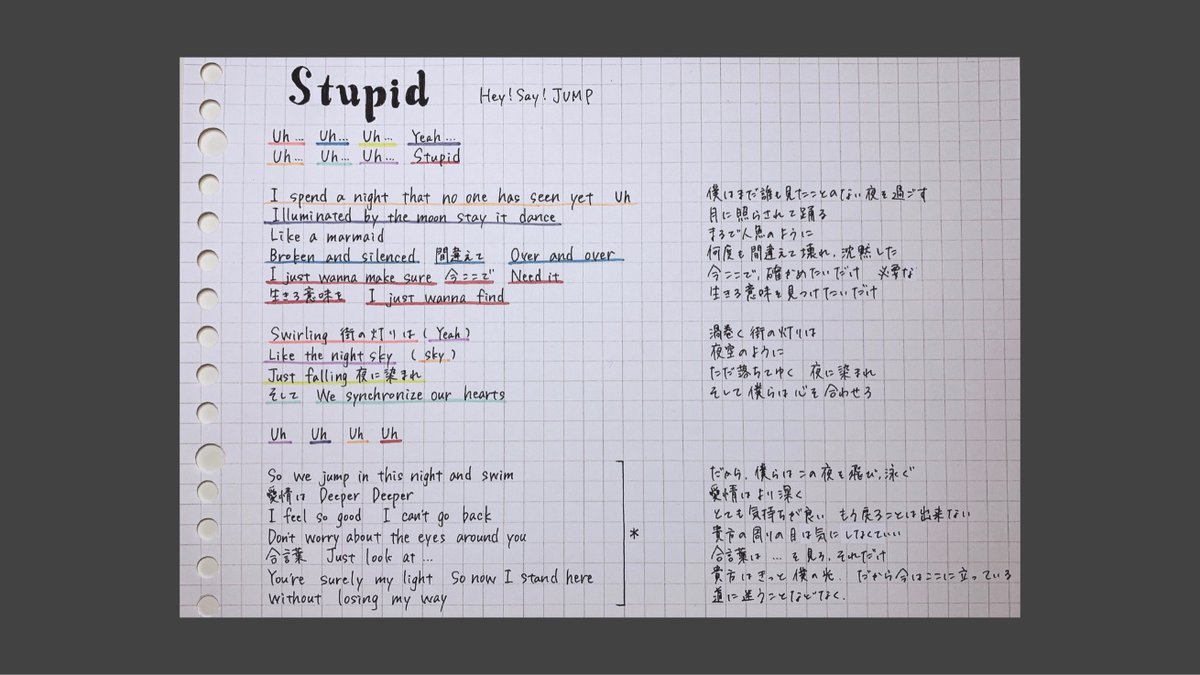 Stupid Hey! Say! JUMP
Uh… Uh… Uh… Yeah…
Uh… Uh… Uh… Stupid
I spend a night that no one has seen yet Uh
Illuminated by the moon stay it dance
Like a marmaid
Broken and silenced 間違えて Over and over
I just wanna make sure 今ここで Need it
生きる意味を I just wanna find
僕はまだ誰も見たことのない夜を過ごす
月に照らされて踊る
まるで人魚のように
何度も間違えて壊れ、沈黙した
今ここで、確かめたいだけ 必要な
生きる意味を見つけたいだけ
Swirling 街の灯りは (Yeah)
Like the night sky (sky)
Just falling 夜に染まれ
そして We synchronize our hearts
渦巻く街の灯りは
夜空のように
ただ落ちてゆく 夜に染まれ
そして僕らは心を合わせる
Uh Uh Uh Uh
So we jump in this night and swim
愛情は Deeper Deeper
I feel so good I can't go back
Don't worry about the eyes around you
合言葉 Just look at …
You're surely my light So now I stand here
without losing my way
*
だから、僕らはこの夜を飛び、泳ぐ
愛情はより深く
とても気持ちが良い もう戻ることは出来ない
貴方の周りの目は気にしなくていい
合言葉は … を見ろ、それだけ
貴方はきっと僕の光. だから今はここに立っている
道に迷うことなどなく.